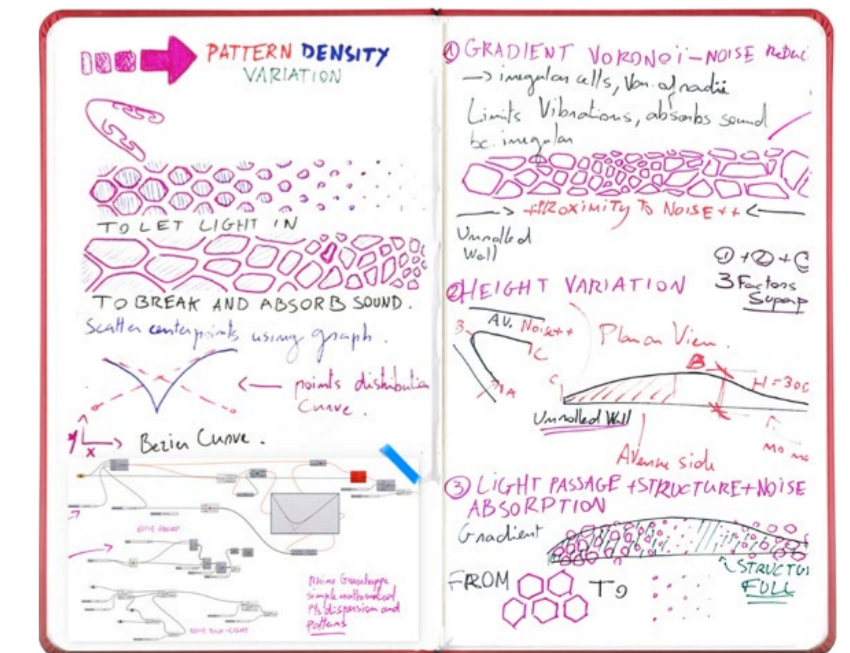 PATTERN DENSITY
VARIATION
TO LET LIGHT IN
TO BREAK AND ABSORB SOUND.
Scatter centerpoints using graph.
points distributio
Curve.
y
x
Bezier Curve.
Using Grasshopper
simple mathematical
Pts dispersion and
patterns
① GRADIENT VORONOÏ-NOISE Reduc
→ irregular cells, Var. of radii
Limits Vibrations, absorbs sound
bc. irregular
PROXIMITY TO NOISE ++
Unrolled
Wall
① + ② +
3 Factors
Superp
② HEIGHT VARIATION
AV. Noise++
B
C
A
Plan on View.
B
C
H = 300
Unrolled Wall
Avenue side
③ LIGHT PASSAGE + STRUCTURE + NOISE
ABSORPTION
Gradient
STRUCTU
FULL
FROM
TO